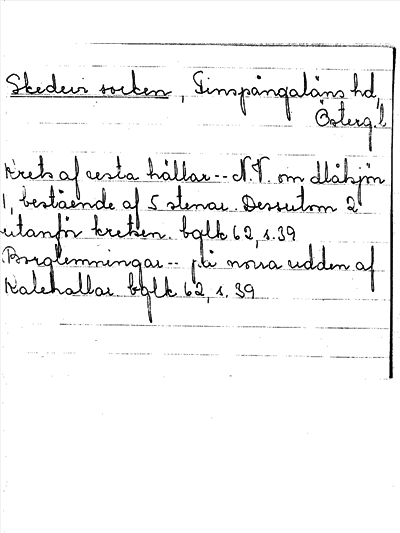 Skedevi socken, Finspångaläns hd,
Österg.l
Krets af resta hällar -- N.V. om
1, bestående af 5 stenar. Dessutom 2
utanför kretsen. bglk 62, s. 39
Borglemningar -- på norra udden af
Kalehallar bglk. 62, s. 39